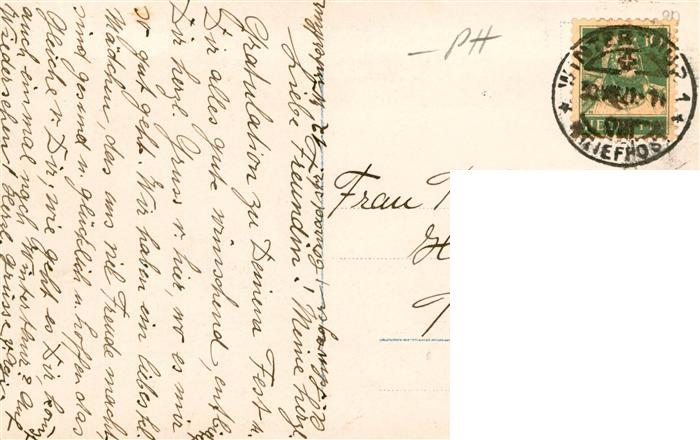 Winterthur 21. Februar
Liebe Freundin! Meine herzl.
Gratulation zu Deinem Fest u.
Dir alles gute wünschend, entbi
Dir herzl. Gruss v. hier, wo es mir
so gut geht. Wir haben ein liebes kl.
Mädchen, das uns viel Freude macht
sind gesund u. glücklich u. hoffen das
Gleiche v. Dir, wie geht es Dir, kom
auch einmal nach Winterthur? Auf
Wiedersehen! Herzl. Grüsse v.
Frau
PH
WINTERTHUR 1
VIII
BRIEFPOST